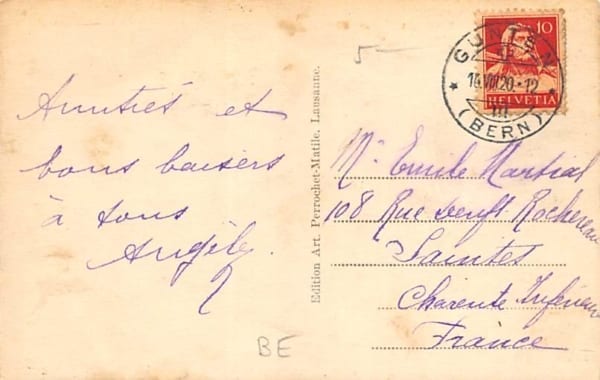 5 -
10
HELVETIA
GUNTEN
14.VIII.20-12
(BERN)
Amitiés et
bons baisers
à tous
Edition Art. Perrochet-Matile, Lausanne.
Mr Emile Martial
108 Rue Denfert Rochereau
Saintes
Charente Inférieure
France
BE